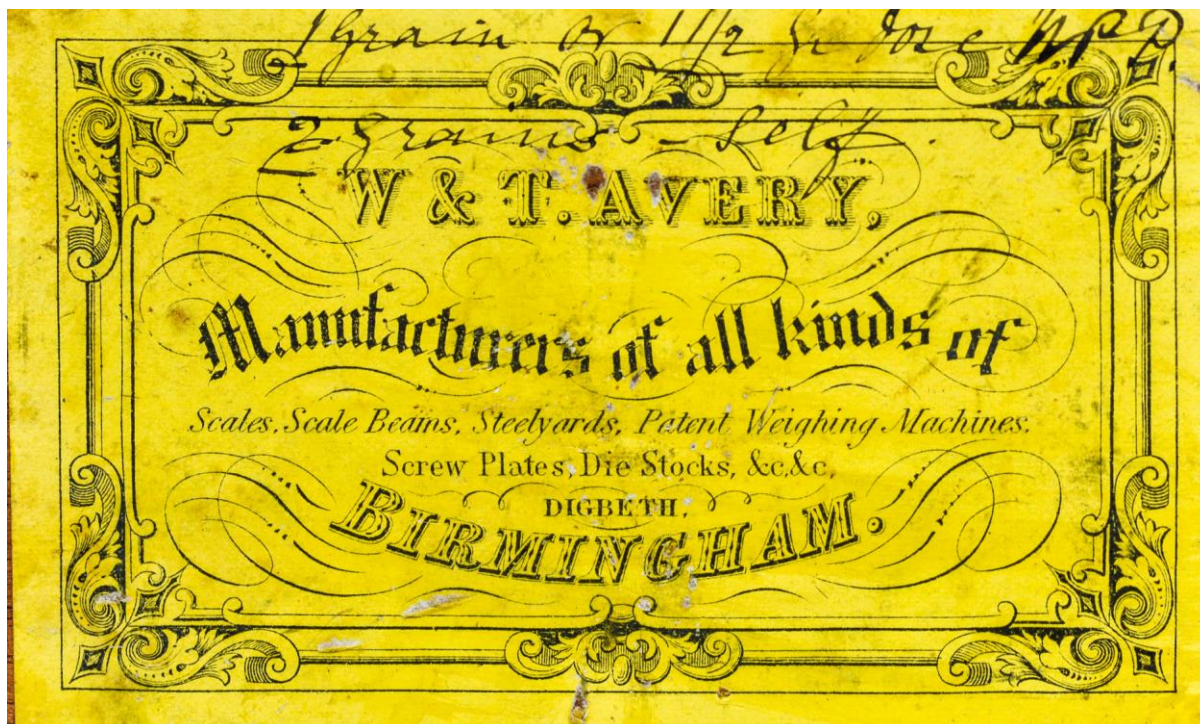 1 grain or 1 1/2 gr dose
2 grains - Self.
W & T. AVERY,
Manufacturers of all kinds of
Scales, Scale Beams, Steelyards, Patent Weighing Machines,
Screw Plates, Die Stocks, &c, &c,
DIGBETH,
BIRMINGHAM.